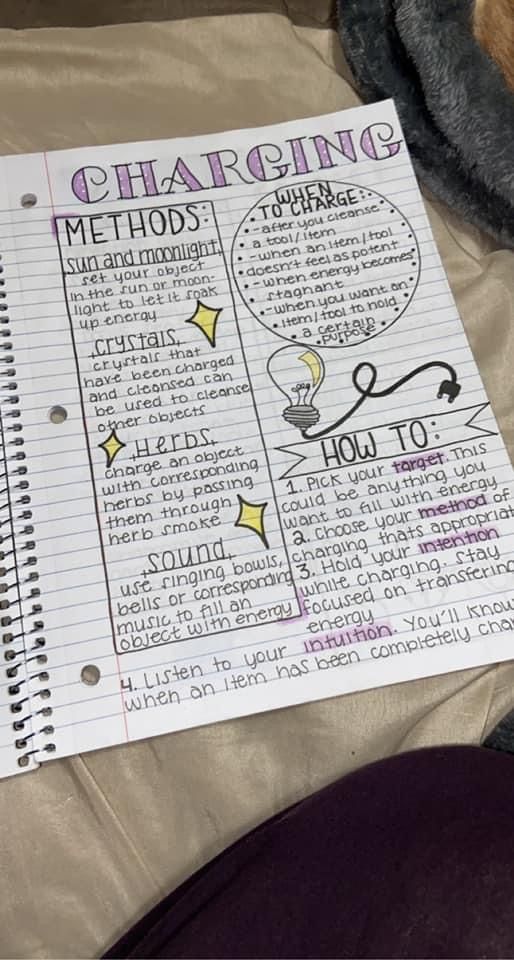 CHARGING
METHODS:
sun and moonlight
set your object
in the sun or moon-
light to let it soak
up energy
crystals
crystals that
have been charged
and cleansed can
be used to cleanse
other objects
Herbs
charge an object
with corresponding
herbs by passing
them through
herb smoke
sound
use singing bowls,
bells or corresponding
music to fill an
object with energy
WHEN
TO CHARGE:
-after you cleanse
a tool/item
-when an item/tool
doesn't feel as potent
-when energy becomes
stagnant
-when you want an
item/tool to hold
a certain
purpose
HOW TO:
1. Pick your target. This
could be anything you
want to fill with energy
2. Choose your method of
charging thats appropriat
3. Hold your intention
while charging. Stay
focused on transfering
energy
4. Listen to your intuition. You'll know
when an item has been completely cha